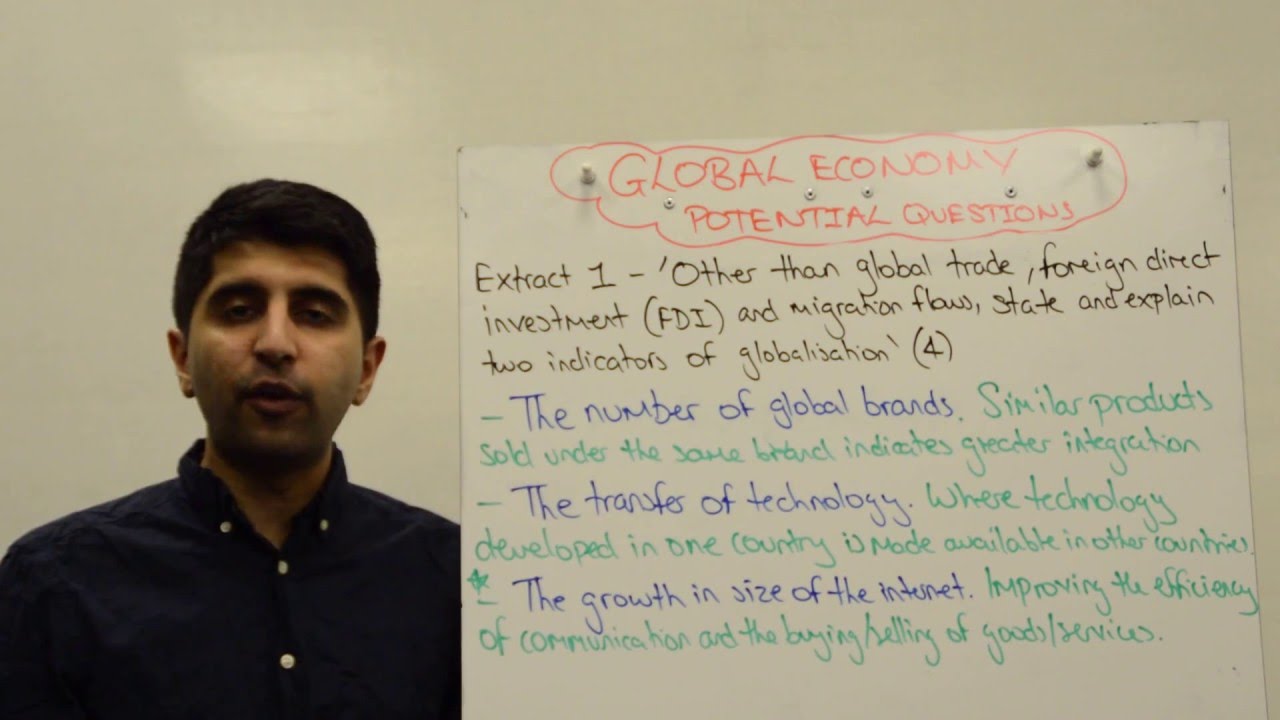 GLOBAL ECONOMY
POTENTIAL QUESTIONS
Extract 1 - 'Other than global trade, foreign direct
investment (FDI) and migration flows, state and explain
two indicators of globalisation' (4)
- The number of global brands. Similar products
sold under the same brand indicates greater integration
- The transfer of technology. Where technology
developed in one country is made available in other countries.
* - The growth in size of the internet. Improving the efficiency
of communication and the buying/selling of goods/services.